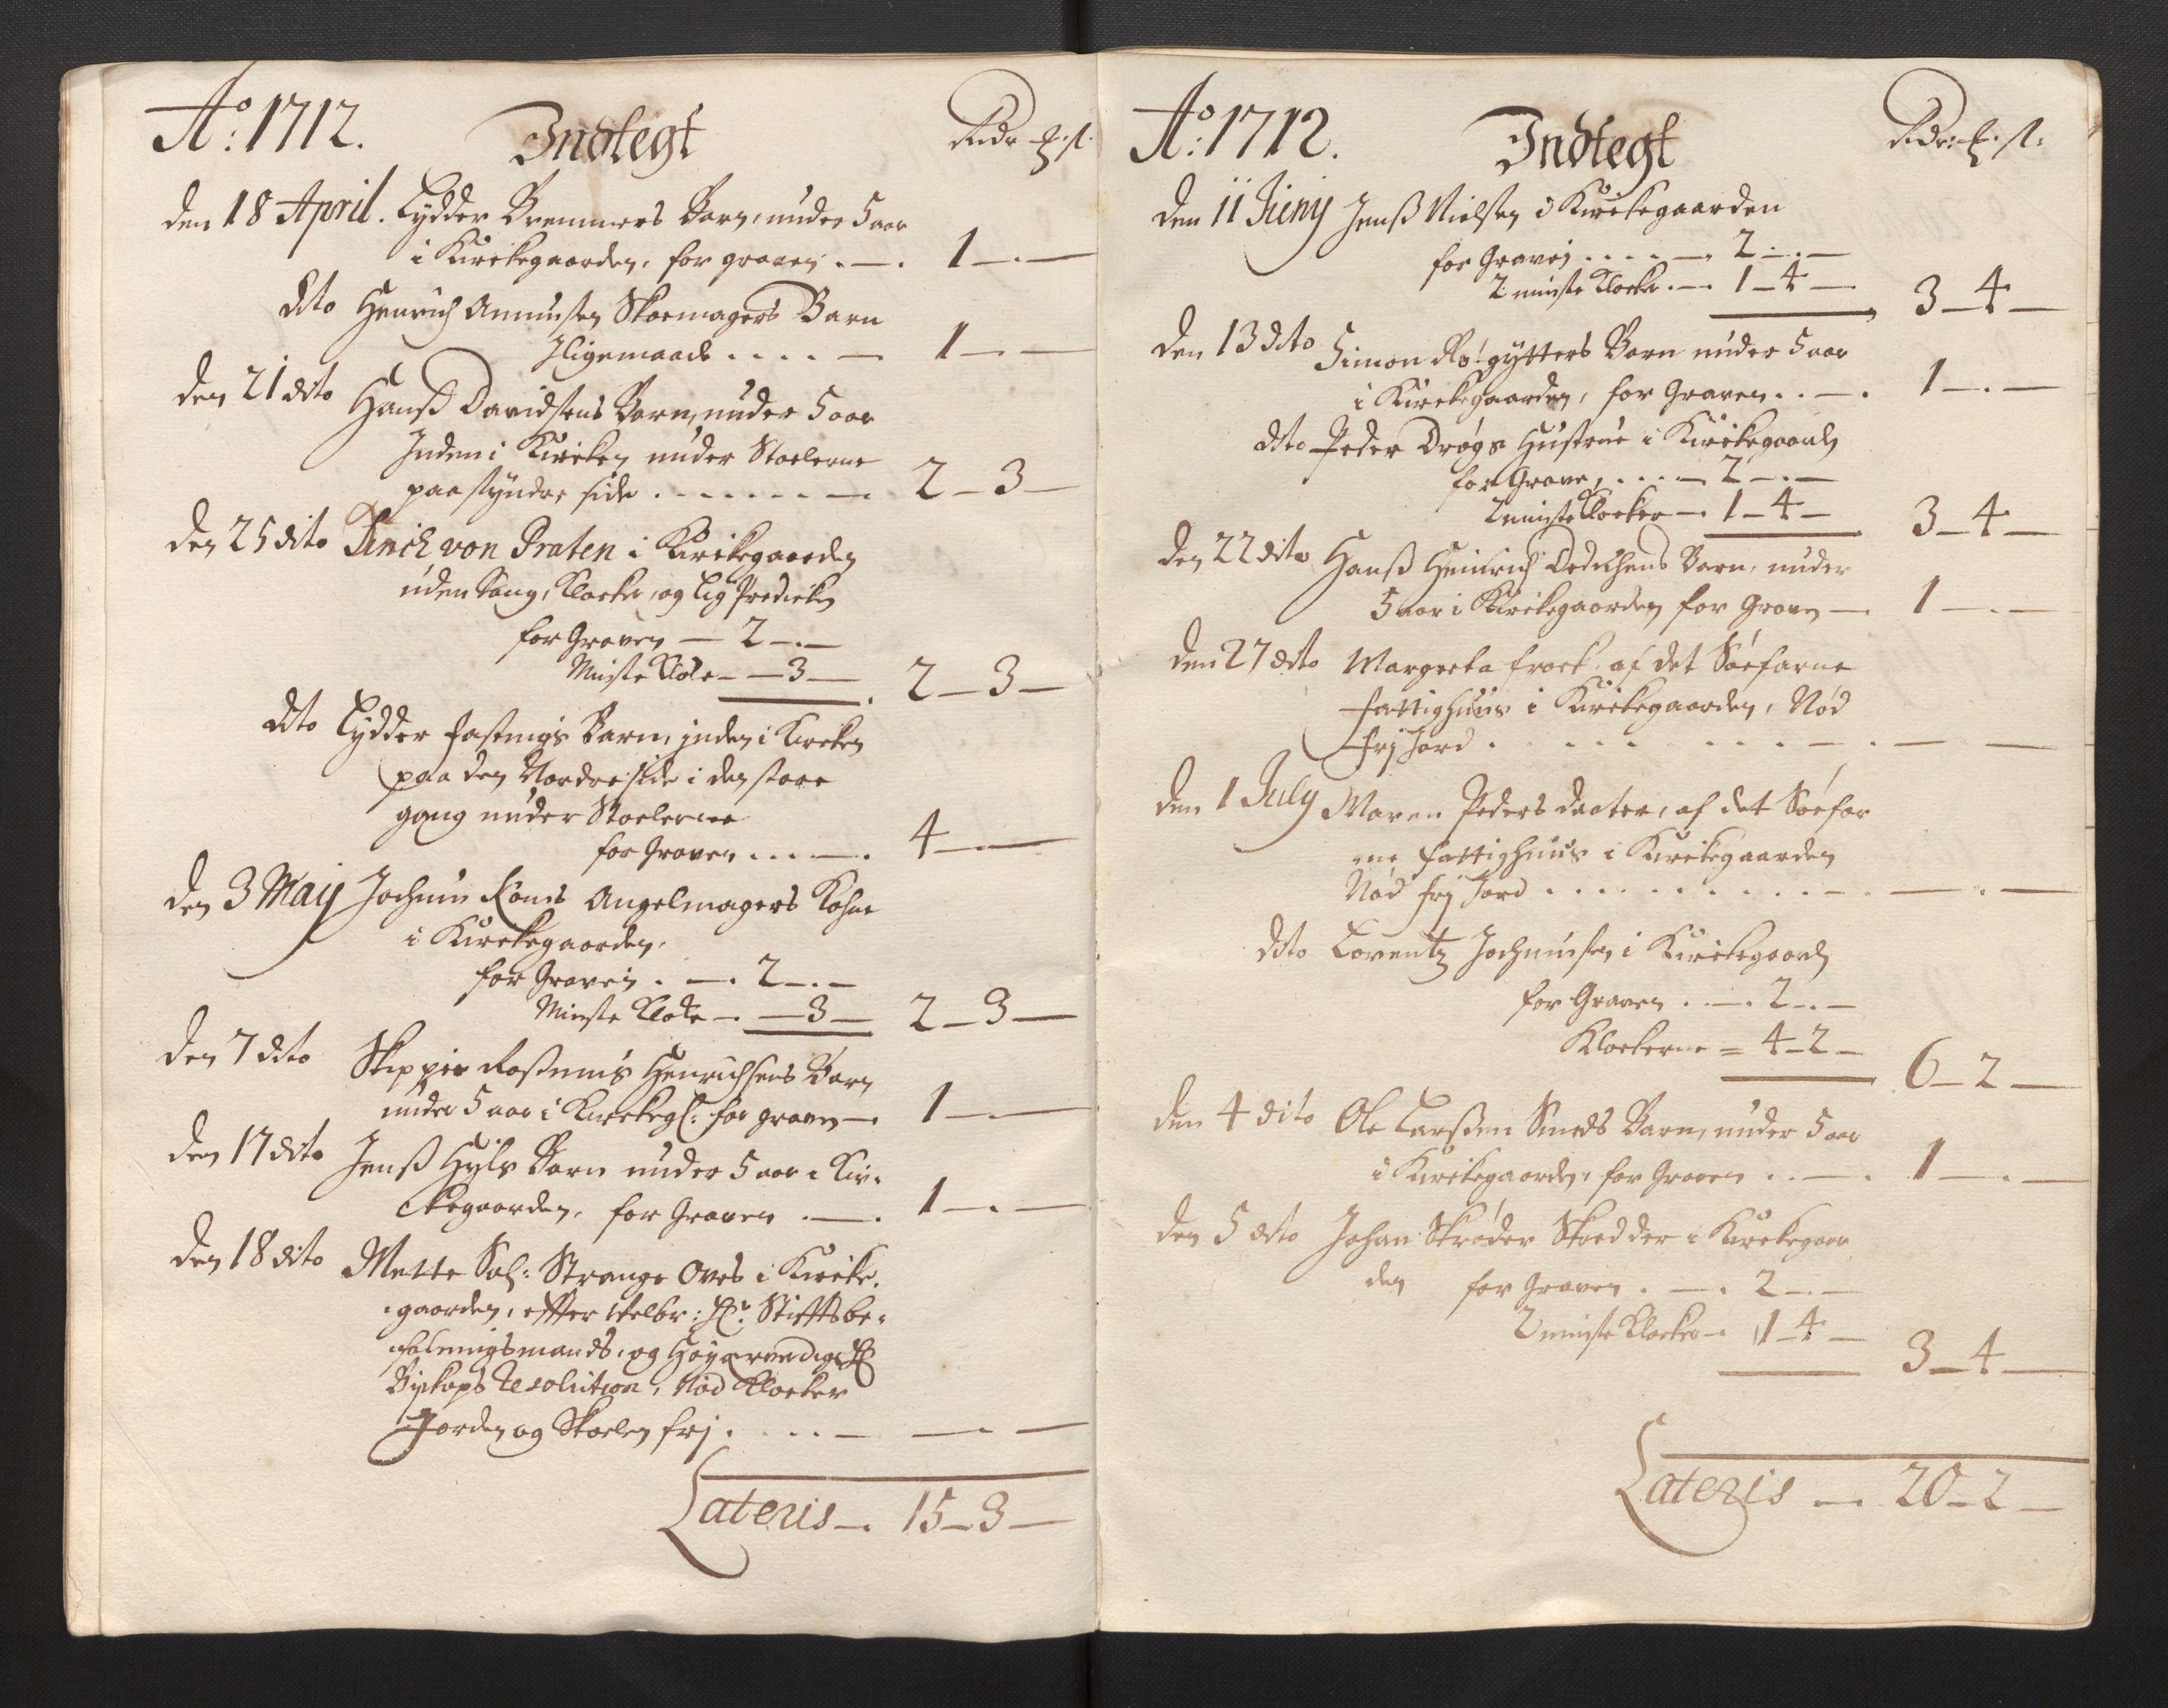 Ao: 1712. Indtegt Rdr ß.
den 18 April. Lydder Bremmers Barn, under 5 aar
i Kirckegaarden, for graven . — . 1 — . —
dito Henrich Anunsen Skoemagers Barn
Jligemaade . . . . — 1 — . —
den 21 dito Hanß Davidsens Barn, under 5 aar
Inden i Kircken under Stoelerne
paa syndre side . . . . . . . — 2 — 3 —
den 25 dito Dirich von Praten i Kirckegaarden
uden Sang, Klocker, og Lig Predicken
for Graven — 2 — . —
Minste Klocke — — 3 — 2 — 3 —
dito Lydder Fastings Barn, inden i Kircken
paa den Nordre side i den store
gang under Stoelerne
for Graven . . . — . 4 — . —
den 3 Maij Jochum Angelmagers Kohne
i Kirckegaarden,
for Graven . — . 2 — . —
Minste Klocke — . — 3 — 2 — 3 —
den 7 dito Skipper Rasmus Henrichsens Barn
under 5 aar i Kirckeg: for graven — . 1 — . —
den 17 dito Jenß Hyls Barn under 5 aar i Kir-
ckegaarden, for Graven . — . 1 — . —
den 18 dito Mette Sal: Strange Oves i Kircke-
gaarden, effter Welbr: Hr: Stifftsbe-
falningsmands, og Høyærværdige Hr
Biskops Resolution, Nød Klocker
Jorden og Skoelen frj . . . . — — . —
Lateris — . 15 — 3 —
Ao: 1712. Indtegt Rdr: ß:
den 11 Juny Jenß Nielsen i Kirckegaarden
for Graven . . . . — . 2 — . —
2 minste Klocker . — . 1 — 4 — 3 — 4 —
den 13 dito Simon Rotgytters Barn under 5 aar
i Kirckegaarden, for Graven . . — . 1 — . —
dito Peder Drøgs Hustrue i Kirckegaarden
for Graven . . . — 2 — . —
2 minste Klocker — . 1 — 4 — 3 — 4 —
den 22 dito Hanß Heinrich Dedechens Barn, under
5 aar i Kirckegaarden for Graven — . 1 — . —
den 27 dito Margreta Frock. af det Søefarne
Fattighuus i Kirckegaarden, Nød
frj Jord . . . . . . . . — . — —
den 1 July Maren Peders daater, af det Søefar
ne Fattighuus i Kirckegaarden
Nød frj Jord . . . . . . . . . — . — . —
dito Lorentz Jochumsen i Kirckegaarden
for Graven . — . 2 — . —
Klockerne = 4 — 2 — 6 — 2 —
den 4 dito Ole Larßen Smeds Barn, under 5 aar
i Kirckegaarden, for Graven . . — . 1 — . —
den 5 dito Johan Skrøder Skredder i Kirckegaar
den for Graven . — . 2 — . —
2 minste Klocker — . 1 — 4 — 3 — 4 —
Lateris — . 20 — 2 —